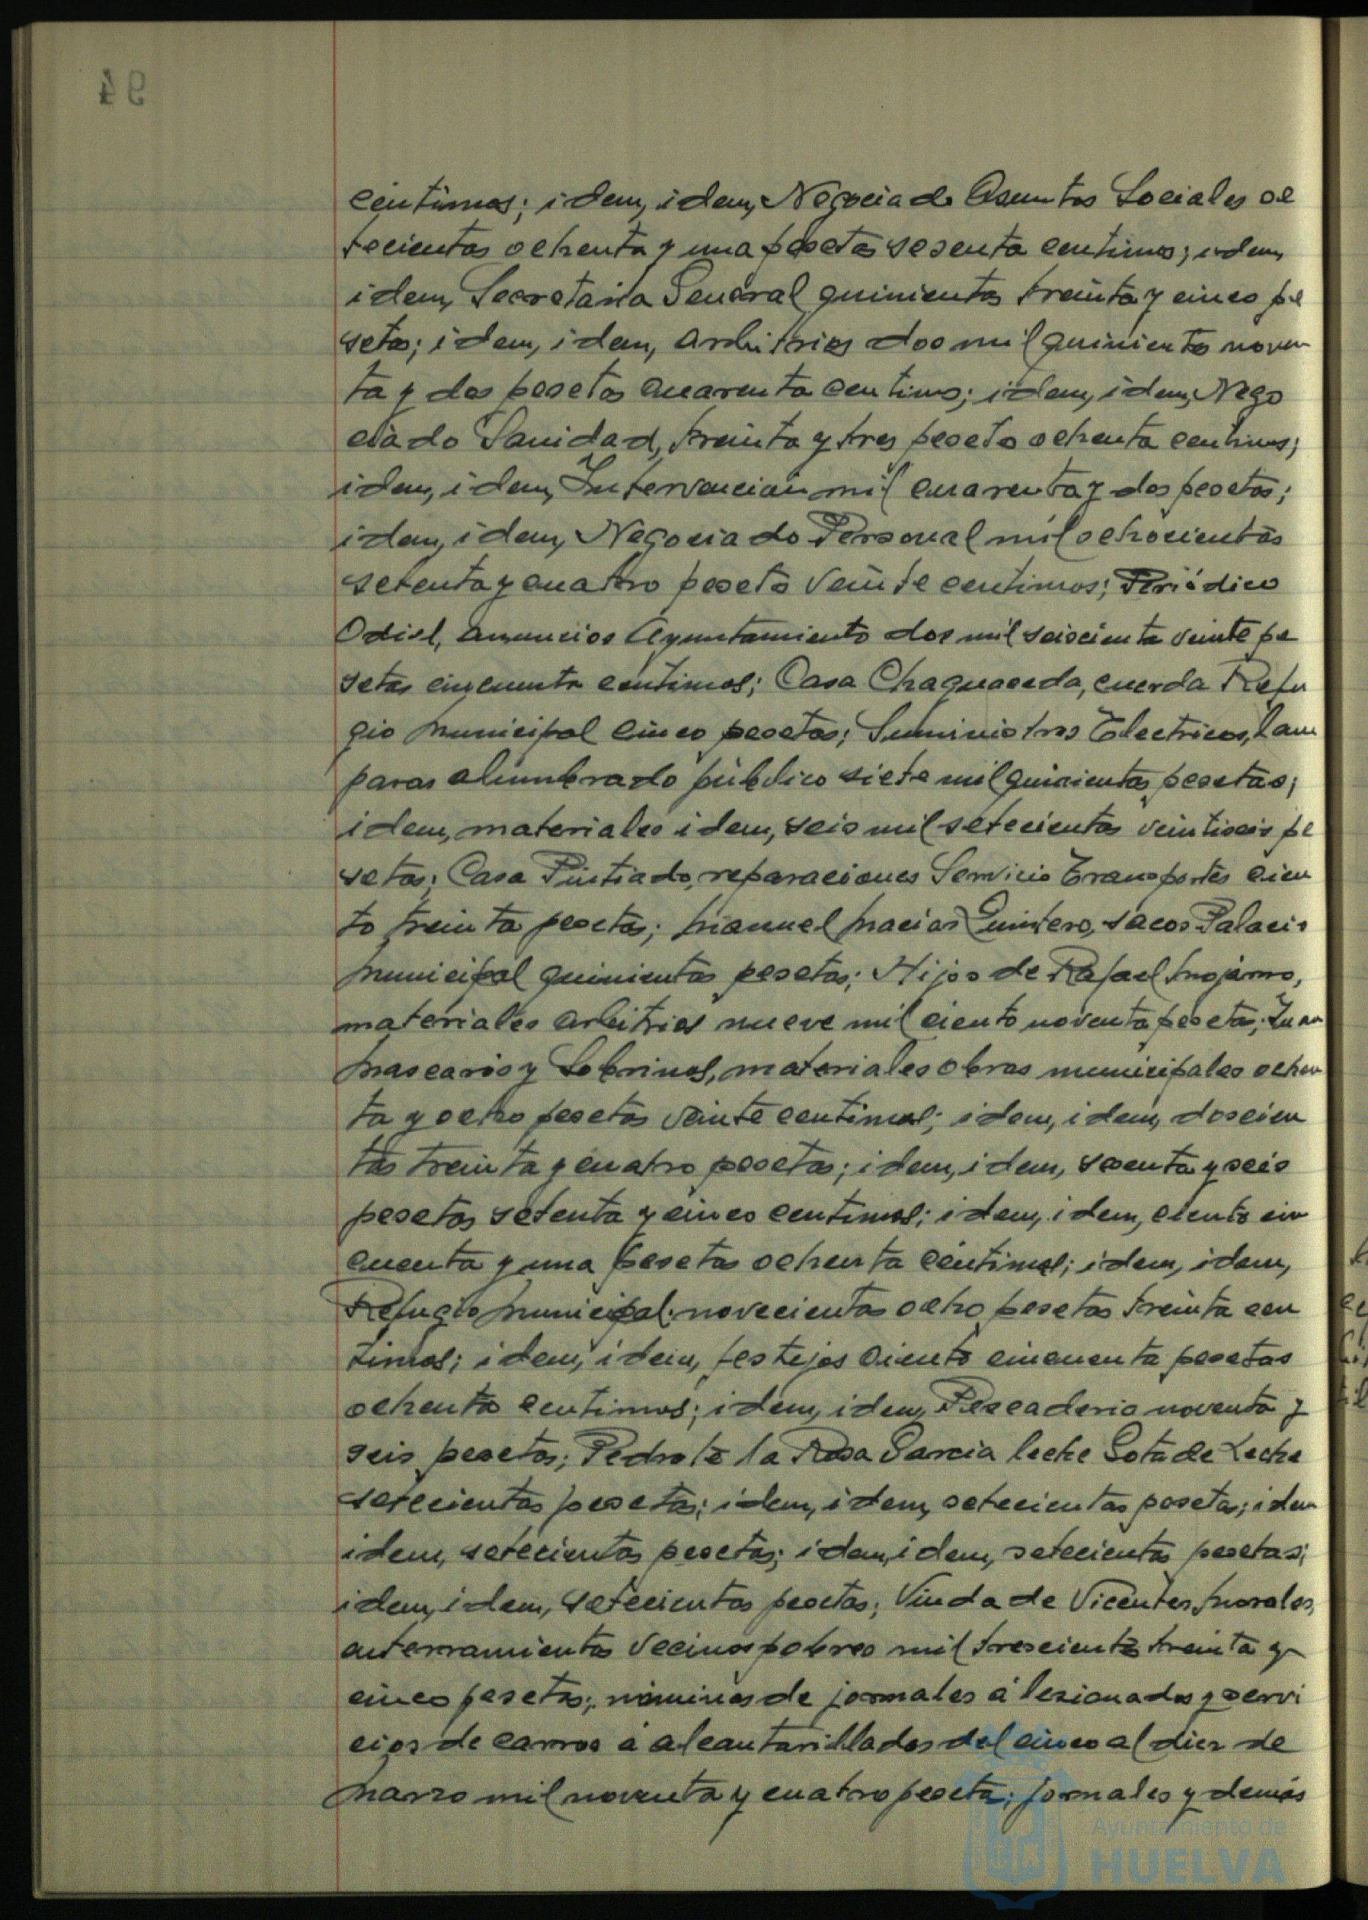 94
centimos; idem, idem, Negociado Asuntos Sociales se
tecientas ochenta y una pesetas sesenta centimos; idem,
idem, Secretaria General quinientas treinta y cinco pe
setas; idem, idem, Arbitrios dos mil quinientas noven
ta y dos pesetas cuarenta centimos; idem, idem, Nego
ciado Sanidad, treinta y tres pesetas ochenta centimos;
idem, idem, Intervencion mil cuarenta y dos pesetas;
idem, idem, Negociado Personal mil ochocientas
setenta y cuatro pesetas veinte centimos; Periódico
Odiel, anuncios Ayuntamiento dos mil seiscientas veinte pe
setas cincuenta centimos; Casa Chaguaceda, cuerda Refu
gio Municipal cinco pesetas; Suministros Electricos, lam
paras alumbrado público siete mil quinientas pesetas;
idem, materiales idem, seis mil setecientas veintiseis pe
setas; Casa Pintiado, reparaciones Servicio Transportes cien
to treinta pesetas; Manuel Macias Quintero, sacos Palacio
Municipal quinientas pesetas; Hijos de Rafael Mojarro,
materiales arbitrios nueve mil ciento noventa pesetas; Juan
Mascarós y Sobrinos, materiales obras municipales ochen
ta y ocho pesetas veinte centimos; idem, idem, doscien
tas treinta y cuatro pesetas; idem, idem, sesenta y seis
pesetas setenta y cinco centimos; idem, idem, ciento cin
cuenta y una pesetas ochenta céntimos; idem, idem,
Refugio Municipal novecientas ocho pesetas treinta cen
timos; idem, idem, festejos ciento cincuenta pesetas
ochenta centimos; idem, idem, Pescaderia noventa y
seis pesetas; Pedro de la Rosa Garcia leche Gota de Leche
setecientas pesetas; idem, idem, setecientas pesetas; idem
idem, setecientas pesetas; idem, idem, setecientas pesetas;
idem, idem, setecientas pesetas; Viuda de Vicentes Morales,
enterramientos vecinos pobres mil trescientas treinta y
cinco pesetas; nóminas de jornales á lesionados y servi
cios de carros á alcantarillados del cinco al diez de
Marzo mil noventa y cuatro pesetas; jornales y demás
Ayuntamiento de
HUELVA